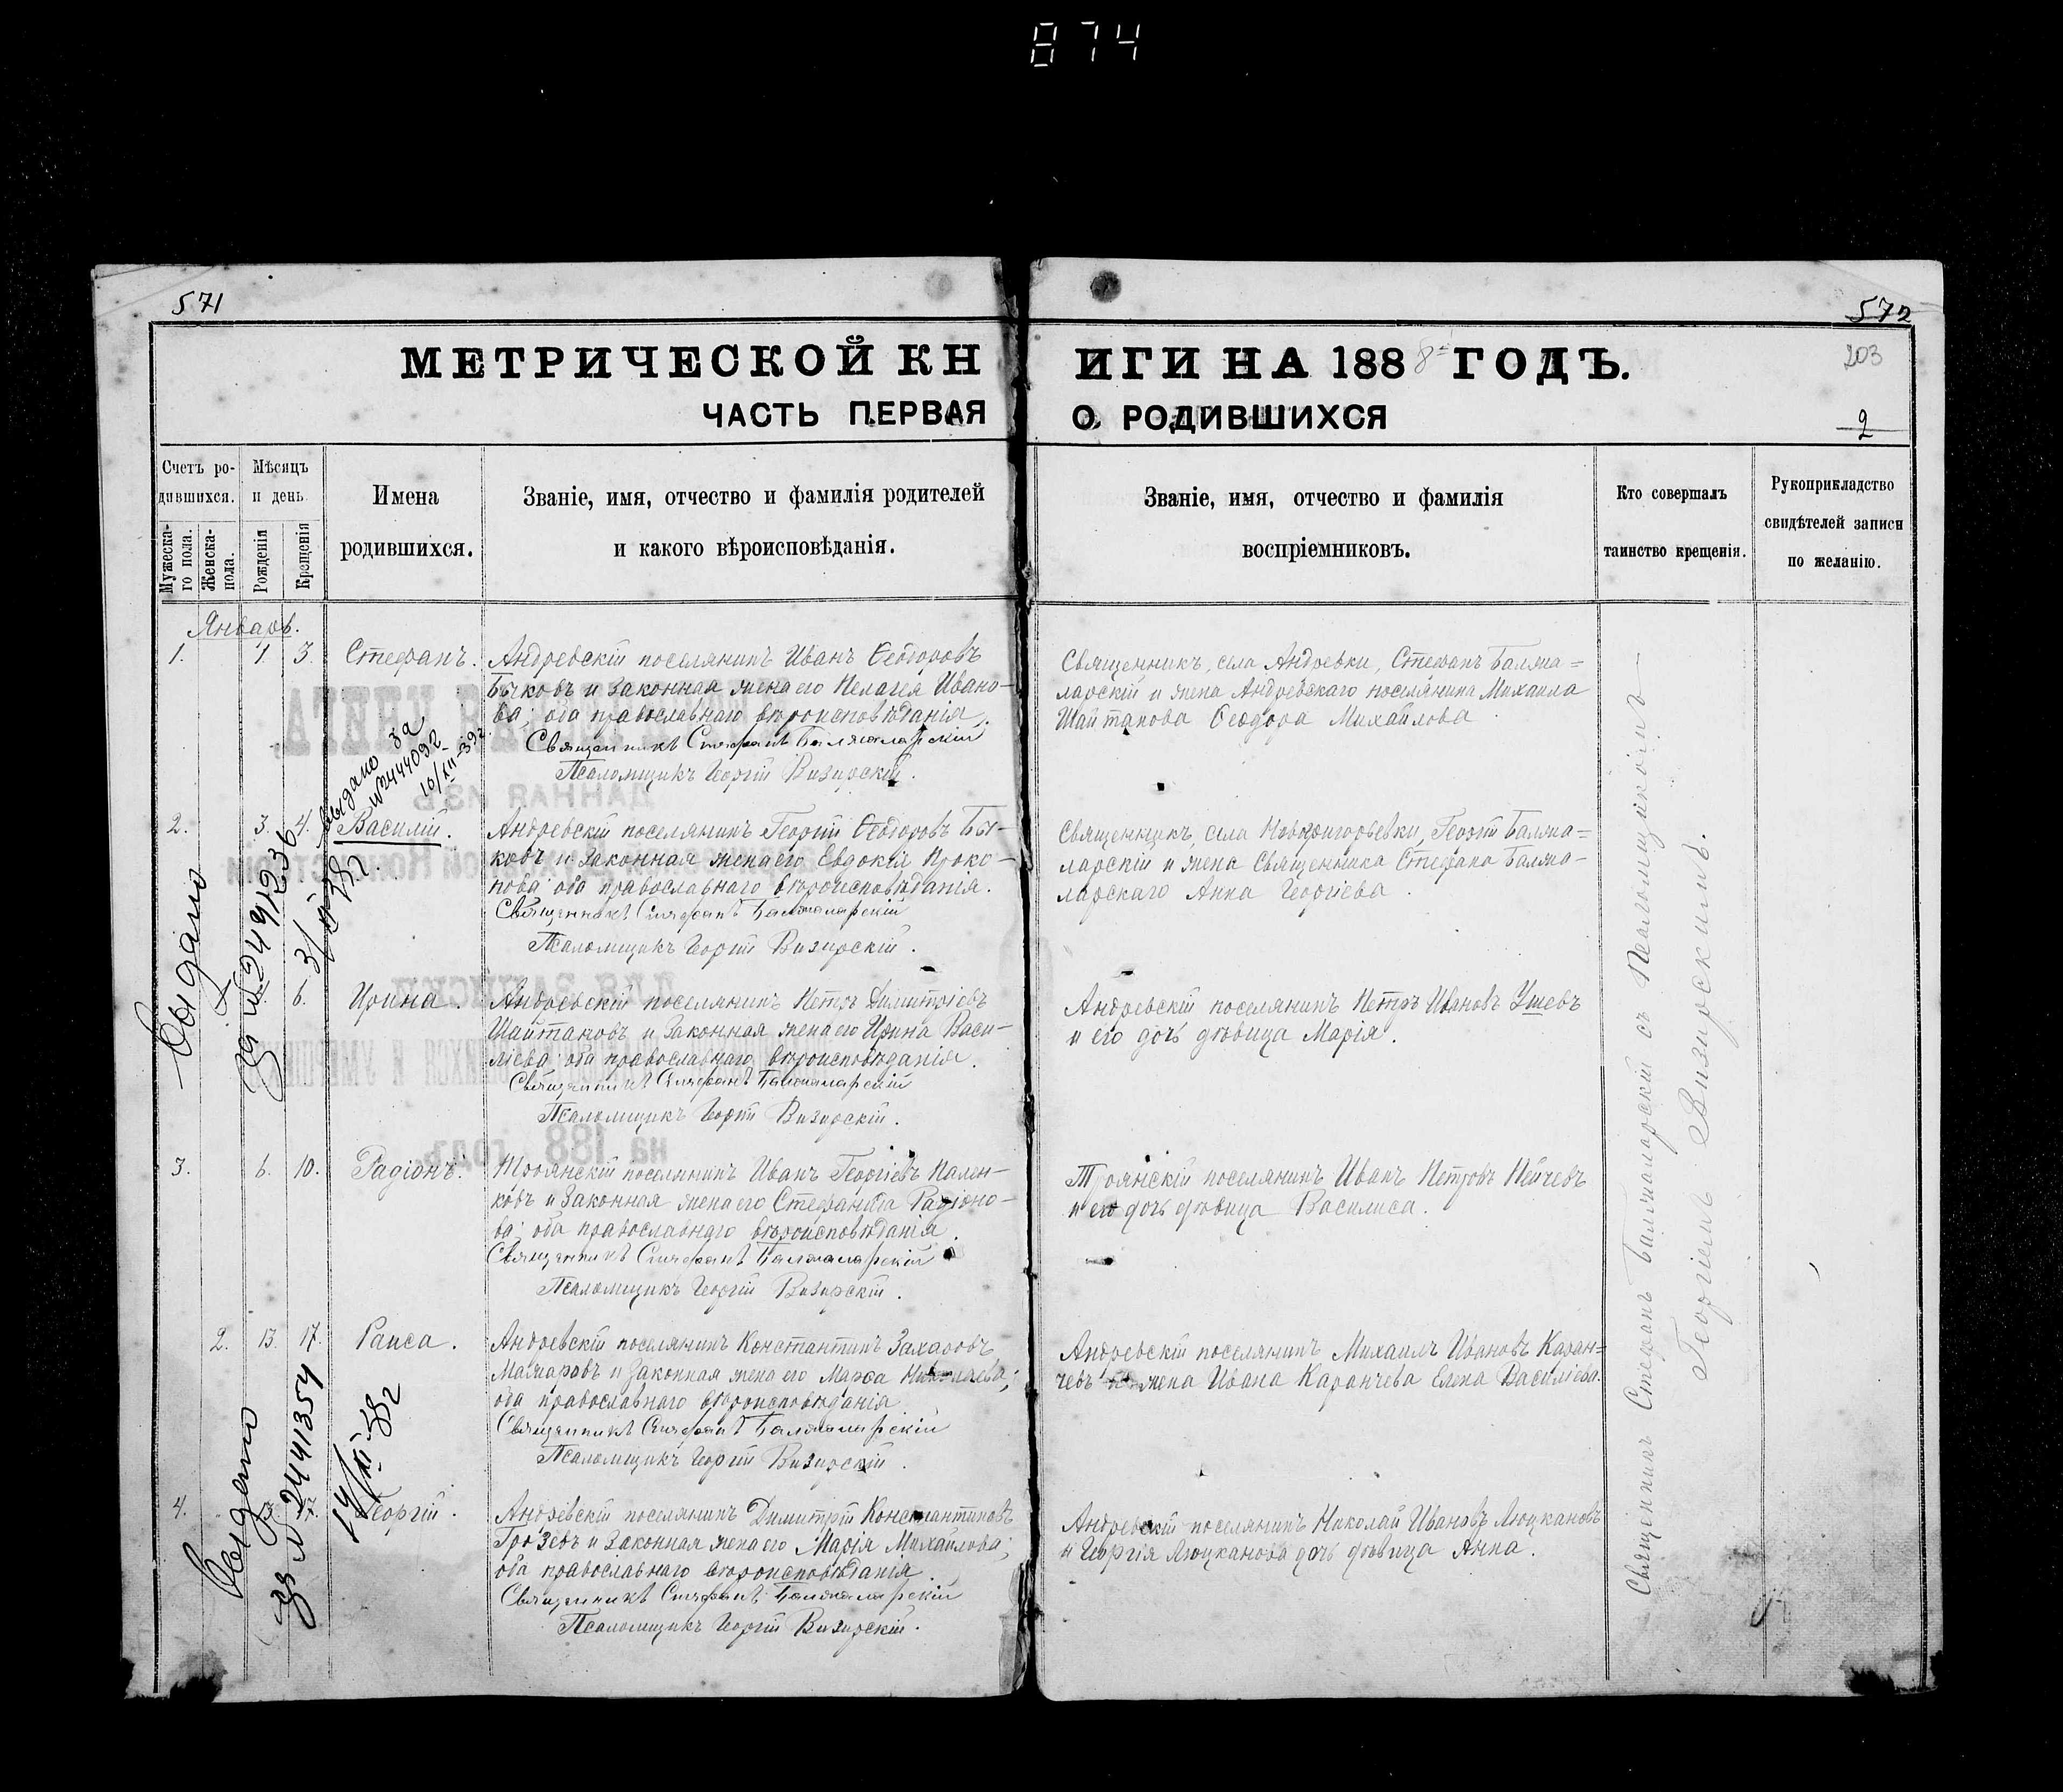 874
571
572
МЕТРИЧЕСКОЙ КН
ИГИ НА 1888 ГОДЪ.
203
ЧАСТЬ ПЕРВАЯ
О РОДИВШИХСЯ
2
Счетъ ро-
дившихся.
Мужеска-
го пола.
Женска-
пола.
Мѣсяцъ
и день
Рожденія
Крещенія
Имена
родившихся.
Званіе, имя, отчество и фамилія родителей
и какого вѣроисповѣданія.
Званіе, имя, отчество и фамилія
воспріемниковъ.
Кто совершалъ
таинство крещенія.
Рукоприкладство
свидѣтелей записи
по желанію.
Январь.
1. 1. 3. Стефанъ.
Андреевскій поселянинъ Иванъ Ѳеодоровъ
Бычковъ и законная жена его Пелагея Ивано-
ва; оба православнаго вѣроисповѣданія.
Священникъ Стефанъ Балмаларскій
Псаломщикъ Георгій Визирскій.
Священникъ, села Андреевки, Стефанъ Балма=
ларскій и жена Андреевскаго поселянина Михаила
Шайтанова Ѳеодора Михайлова
выдано за
№ 2444092
10/XII-39г.
2. 3. 4. Василій.
Андреевскій поселянинъ Георгій Ѳеодоровъ Быч-
ковъ и законная жена его Евдокія Проко-
пова; оба православнаго вѣроисповѣданія.
Священникъ Стефанъ Балмаларскій
Псаломщикъ Георгій Визирскій.
Священникъ, села Новогригорьевки, Георгій Балма=
ларскій и жена священника Стефана Балма-
ларскаго Анна Георгіева.
Выдано
за № 2441236
6. Ирина.
Андреевскій поселянинъ Петръ Димитріевъ
Шайтановъ и законная жена его Ирина Васи-
ліева; оба православнаго вѣроисповѣданія.
Священникъ Стефанъ Балмаларскій
Псаломщикъ Георгій Визирскій.
Андреевскій поселянинъ Петръ Ивановъ Ушевъ
и его дочь дѣвица Марія.
3. 6. 10. Радіонъ.
Троянскій поселянинъ Иванъ Георгіевъ Пален-
ковъ и законная жена его Стефанида Радіоно-
ва; оба православнаго вѣроисповѣданія.
Священникъ Стефанъ Балмаларскій
Псаломщикъ Георгій Визирскій.
Троянскій поселянинъ Иванъ Петровъ Пейчевъ
и его дочь дѣвица Василиса.
2. 13. 17. Раиса.
Андреевскій поселянинъ Константинъ Захаровъ
Мачкаровъ и законная жена его Марѳа Николаева;
оба православнаго вѣроисповѣданія
Священникъ Стефанъ Балмаларскій
Псаломщикъ Георгій Визирскій.
Андреевскій поселянинъ Михаилъ Ивановъ Каран=
чевъ и жена Ивана Каранчева Елена Василіева.
Выдано
за № 2441354
14/XI-38г
4. Георгій.
Андреевскій поселянинъ Димитрій Константиновъ
Грозевъ и законная жена его Марія Михайлова;
оба православнаго вѣроисповѣданія.
Священникъ Стефанъ Балмаларскій
Псаломщикъ Георгій Визирскій.
Андреевскій поселянинъ Николай Ивановъ Люцкановъ
и Георгія Люцканова дочь дѣвица Анна.
Священникъ Стефанъ Балмаларскій съ Псаломщикомъ
Георгіемъ Визирскимъ.